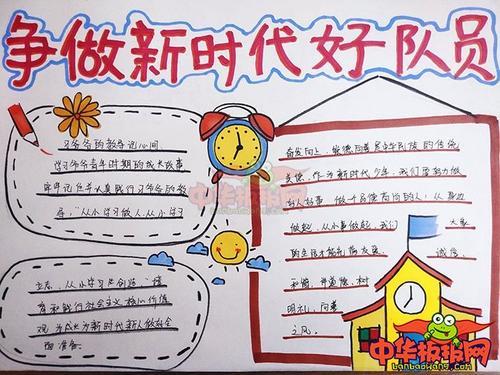 争做新时代好队员
习爷爷的教导记心间
学习爷爷青年时期的成长故事
牢牢记住并认真践行习爷爷的教
导,“从小学习做人、从小学习
立志、从小学习创造”,培
育和践行社会主义核心价值
观,为成长为新时代新人做好全
面准备。
奋发向上,崇德向善是中华民族的传统
美德。作为新时代少年,我们要努力做
好人好事,做一个品德高尚的人,从身边
做起,从小事做起,我们 大家
的生活才能充满友爱 诚信、
和谐、并重德、树
明礼、向善
之风。
中华板报网
中华板报网
banbaowang.com